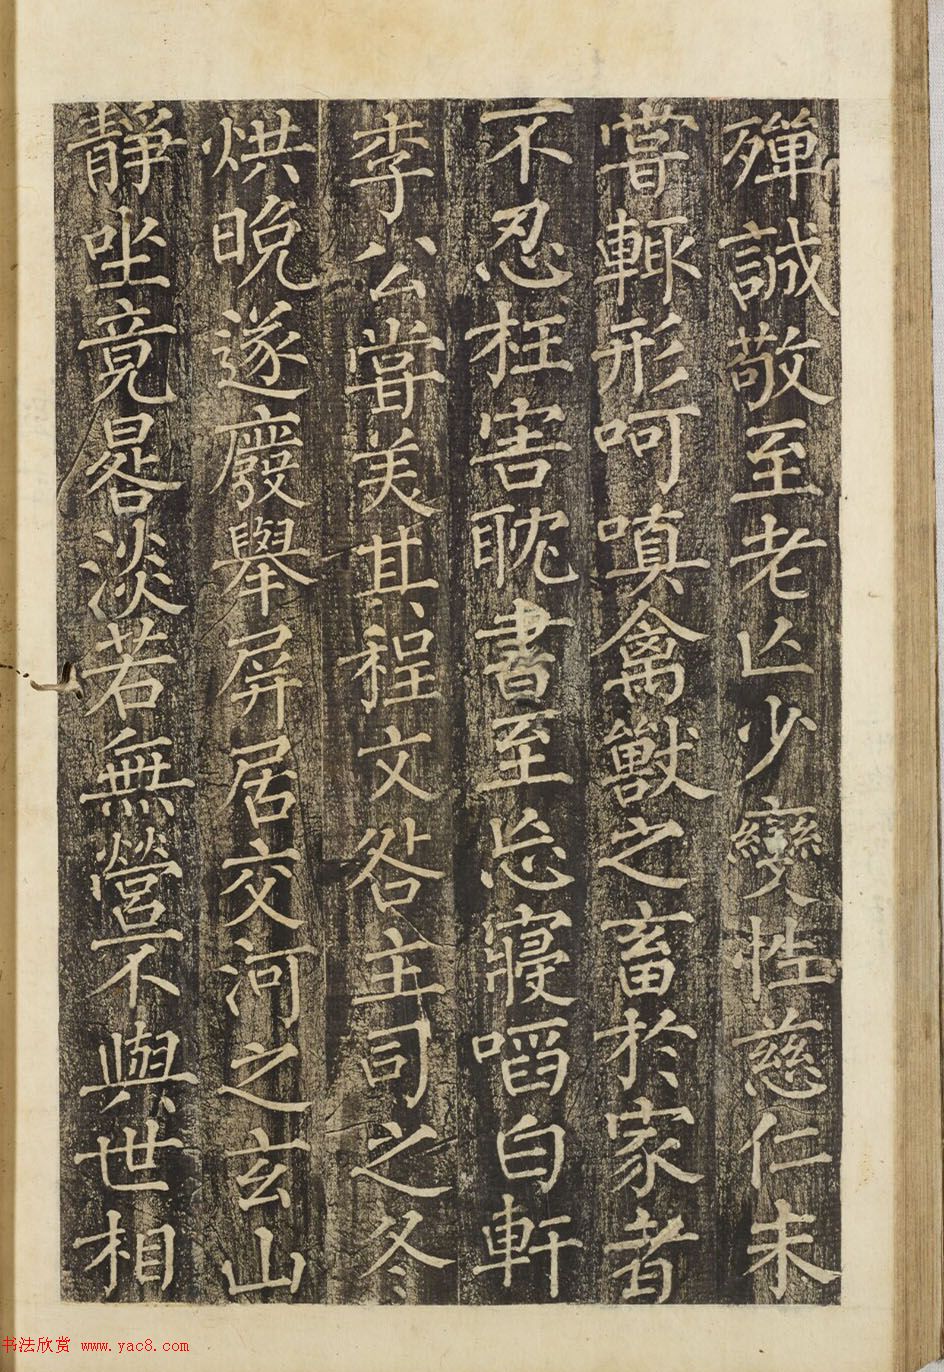 殫誠敬至老亾少變性慈仁未
嘗輙形呵嗔禽獸之畜於家者
不忍枉害耽書至忘寢啗白軒
李公甞美其程文咎主司之冬
烘晩遂廢舉屏居交河之玄山
靜坐竟晷淡若無營不與世相
书法欣赏 www.yac8.com